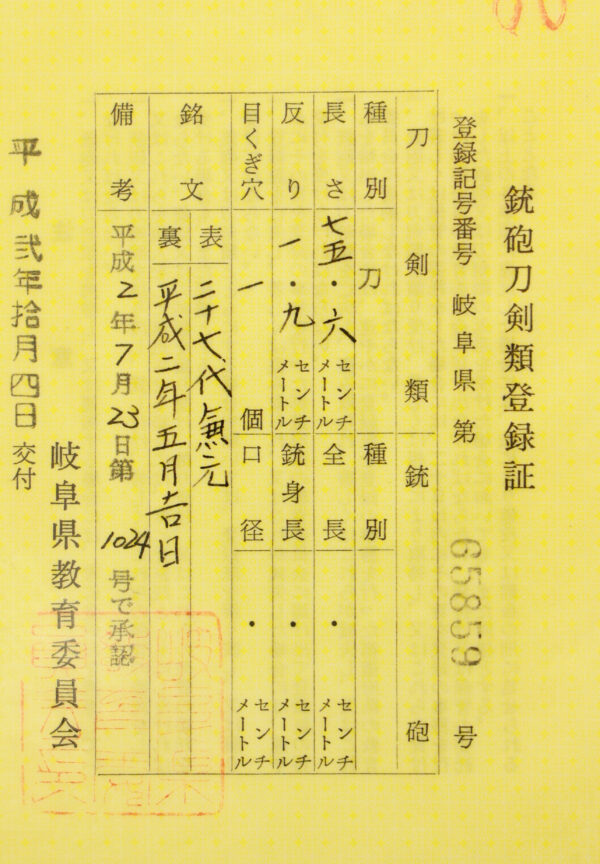 銃砲刀剣類登録証
登録記号番号 岐阜県 第 65859 号
刀剣類 銃砲
種別 刀 種別
長さ 七五・六 センチメートル 全長 ・ センチメートル
反り 一・九 センチメートル 銃身長 ・ センチメートル
目くぎ穴 一 個 口径 ・ センチメートル
銘文 表 二十七代兼元
裏 平成二年五月吉日
備考 平成2年7月23日第1024号で承認
平成弐年拾月四日 交付
岐阜県教育委員会